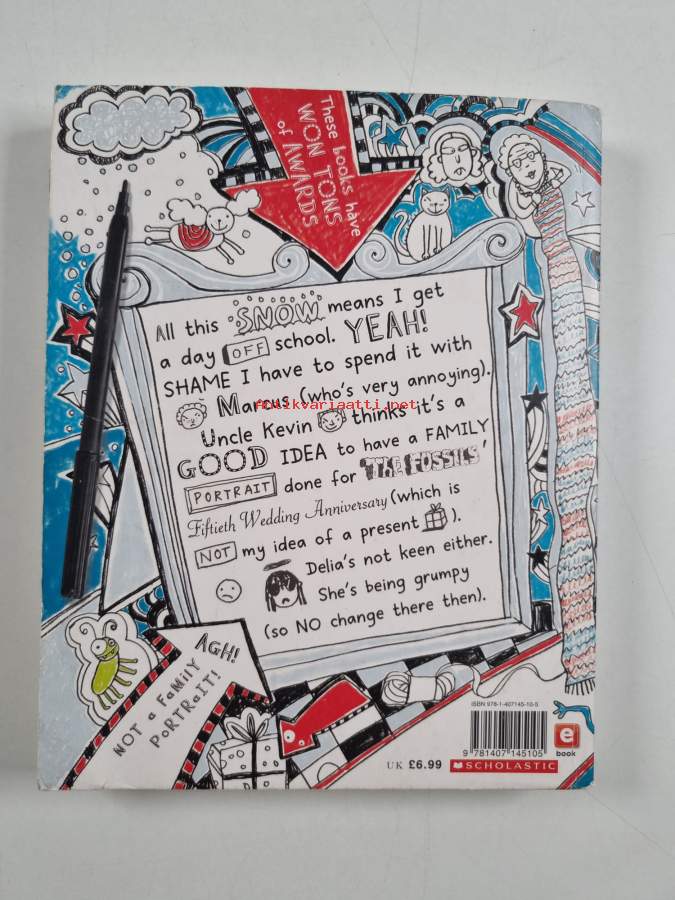 These books have
WON TONS
of AWARDS
All this SNOW means I get
a day OFF school. YEAH!
SHAME I have to spend it with
Marcus (who's very annoying).
Antikvariaatti.net
Uncle Kevin thinks it's a
GOOD IDEA to have a FAMILY
PORTRAIT done for 'THE FOSSILS'
Fiftieth Wedding Anniversary (which is
NOT my idea of a present ).
Delia's not keen either.
She's being grumpy
(so NO change there then).
AGH!
NOT a FaMilY
PoRTRaiT!
ISBN 978-1-407145-10-5
9 781407 145105
e
book
UK £6.99
SCHOLASTIC